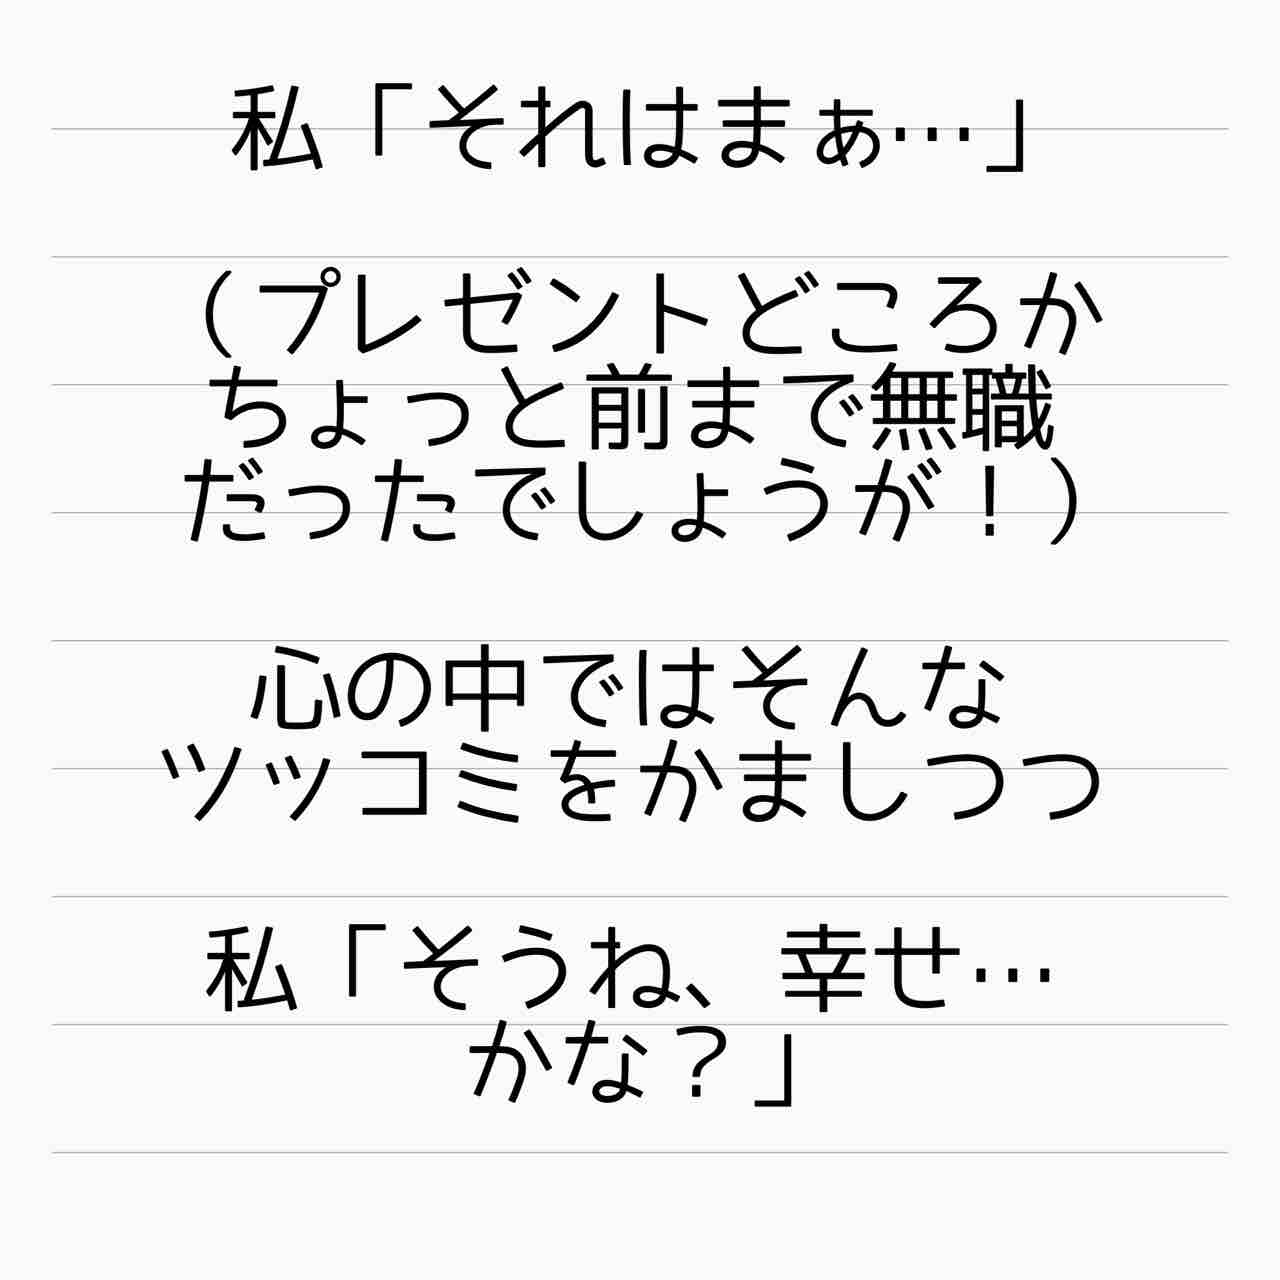 私「それはまぁ…」
（プレゼントどころか
ちょっと前まで無職
だったでしょうが！）
心の中ではそんな
ツッコミをかましつつ
私「そうね、幸せ…
かな？」